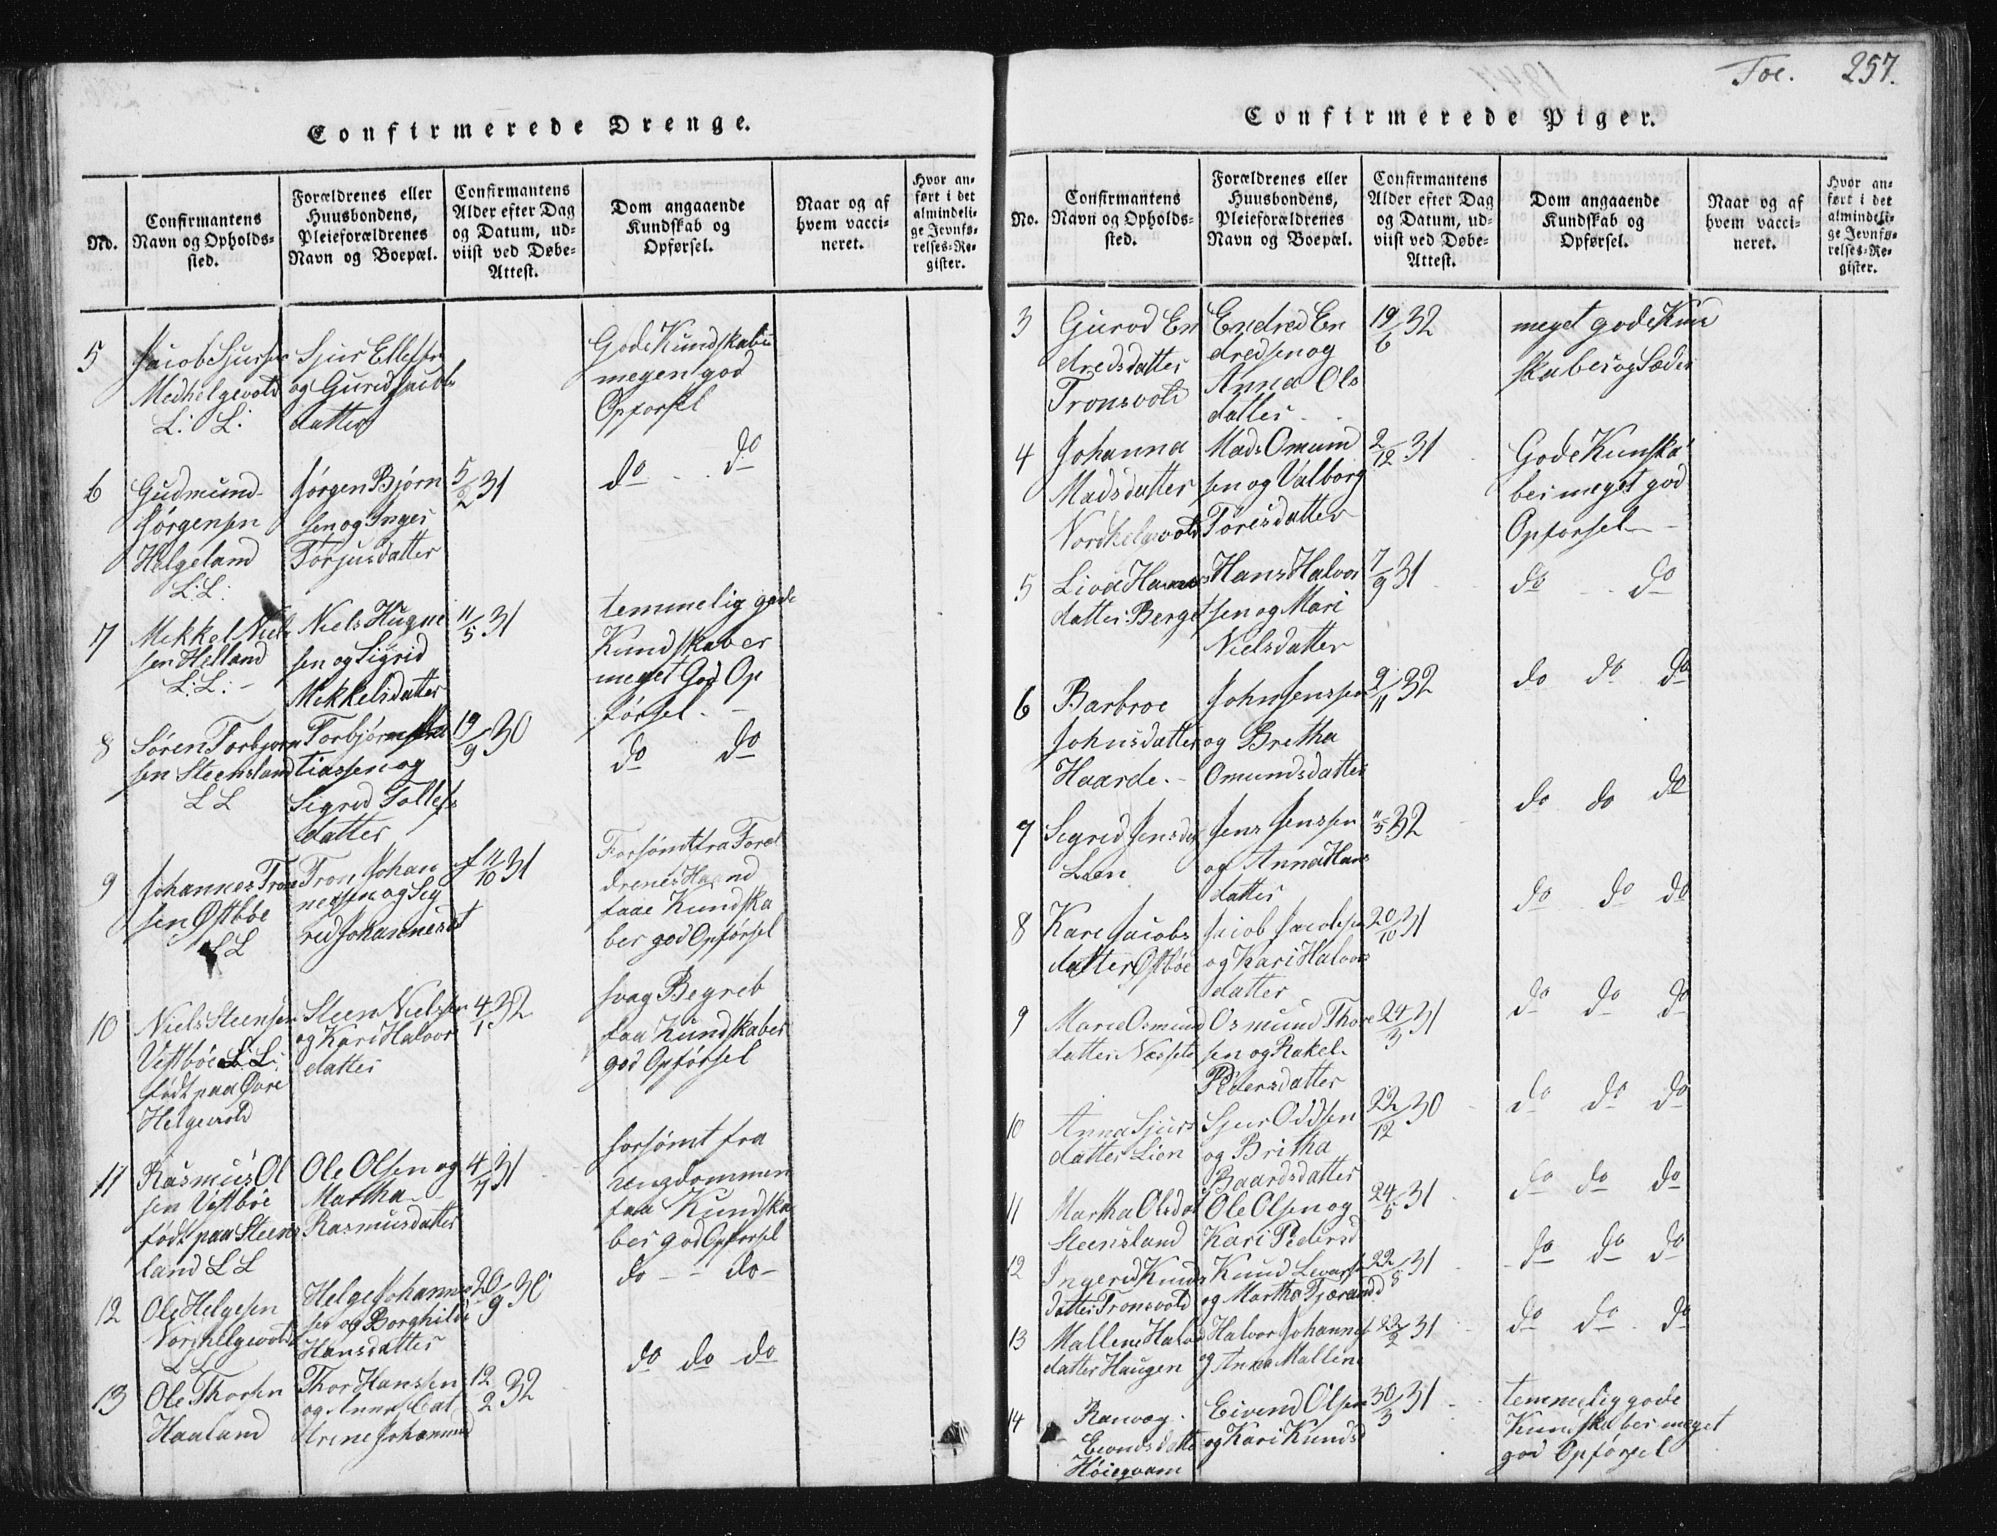 Toe. 257.
Confirmerede Drenge.
No.
Confirmantens
Navn og Opholds-
sted.
Forældrenes eller
Huusbondens,
Pleieforældrenes
Navn og Boepæl.
Confirmantens
Alder efter Dag
og Datum, ud-
viist ved Døbe-
Attest.
Dom angaaende
Kundskab og
Opførsel.
Naar og af
hvem vacci-
neret.
Hvor an-
ført i det
almindeli-
ge Jevnfø-
relses-Re-
gister.
5
Jacob Sjursen
Medhelgevold
L: L:
Sjur Ellefsen
og Gurid Jacobs
datter
Gode Kundskaber
megen god
Opforsel
6
Gudmund
Jørgensen
Helgeland
L: L:
Jørgen Bjørn
sen og Inger
Torjusdatter
5/2 31
do do
7
Mekkel Niels
sen Helland
L: L: -
Niels Hugne
sen og Sigrid
Mekkelsdatter
11/5 31
temmelig gode
Kundskaber
meget God Op
førsel. -
8
Søren Torbjørn
sen Steensland
L L
Torbjørn
tiassen og
Sigred Tollefs
datter
19/9 30
do do
9
Johannes Tron
sen Østbøe
L L
Tron Johan
nessen og Sig
rid Johannesdt
11/10 31
Forsømt fra Foræl
drenes Haand
faae Kundska
ber god Opførsel
10
Niels Steensen
Vestbøe L L:
født paa Øvre
Helgevold
Steen Nielssen
og Kari Halvor
datter
4/1 32
svag Begreb
faa Kundskaber
god Opførsel
11
Rasmus Ol
sen Vestbøe
født paa Steens
land L L
Ole Olsen og
Martha
Rasmusdatter
4/7 31
forsømt fra
ungdommen
faa Kundska
ber god Opforsel
12
Ole Helgesen
Nordhelgevold
L L
Helge Johannes
sen og Borghilde
Hansdatter
20/9 30
do - - do -
13
Ole Thorsen
Haaland
Thor Hansen
og Anne Cat
Hrene Johannesd
12/2 32
do do do
Confirmerede Piger.
No.
Confirmantens
Navn og Opholds-
sted.
Forældrenes eller
Huusbondens,
Pleieforældrenes
Navn og Boepæl.
Confirmantens
Alder efter Dag
og Datum, ud-
viist ved Døbe-
Attest.
Dom angaaende
Kundskab og
Opførsel.
Naar og af
hvem vacci-
neret.
Hvor an-
ført i det
almindeli-
ge Jevnfø-
relses-Re-
gister.
3
Gurod En
dredsdatter
Tronsvold
Endred En
dredsen og
Anna Ols
datter
19/6 32
meget gode Kun
skaber og Sæder
4
Johanna
Madsdatter
Nordhelgevold
Mads Omund
sen og Valborg
Toresdatter
2/12 31
Gode Kunska
ber meget god
Opforsel -
5
Liva Hans
datter Berge
Hans Halvor
sen og Mari
Nielsdatter
7/9 31
do do
6
Barbroe
Johnsdatter
Haarde. -
John Jenssen
og Bretha
Omundsdatter
9/11 32
do do do
7
Segred Jensdat
Lien
Jens Jenssen
og Anna Hans
datter
11/5 32
do do do
8
Kari Jacobs
datter Østbøe
Jacob Jacobsen
og Kari Halvors
datter
20/10 31
do do do
9
Marie Osmund
datter Nesset
Osmund Thore
sen og Rakel
Pedersdatter
24/3 31
do do do
10
Anna Sjurs
datter Lien
Sjur Oddsen
og Britha
Baardsdatter
22/12 30
do do do
11
Martha Olsdat
Steensland
Ole Olsen og
Kari Pedersd
24/5 31
do do do
12
Ingerid Knuds
datter Tronsvold
Knud
og Martha Tjærandd
22/8 31
do do do
13
Mallene Halvor
datter Haugen
Halvor Johannes
og Anna Mallene
22/2 31
do do do
14
Ranvæg
Eivindsdatter
Høiegvam
Eivend Olsen
og Kari Knuds
30/3 31
temmelig gode
Kundskaber meget
god Opførsel